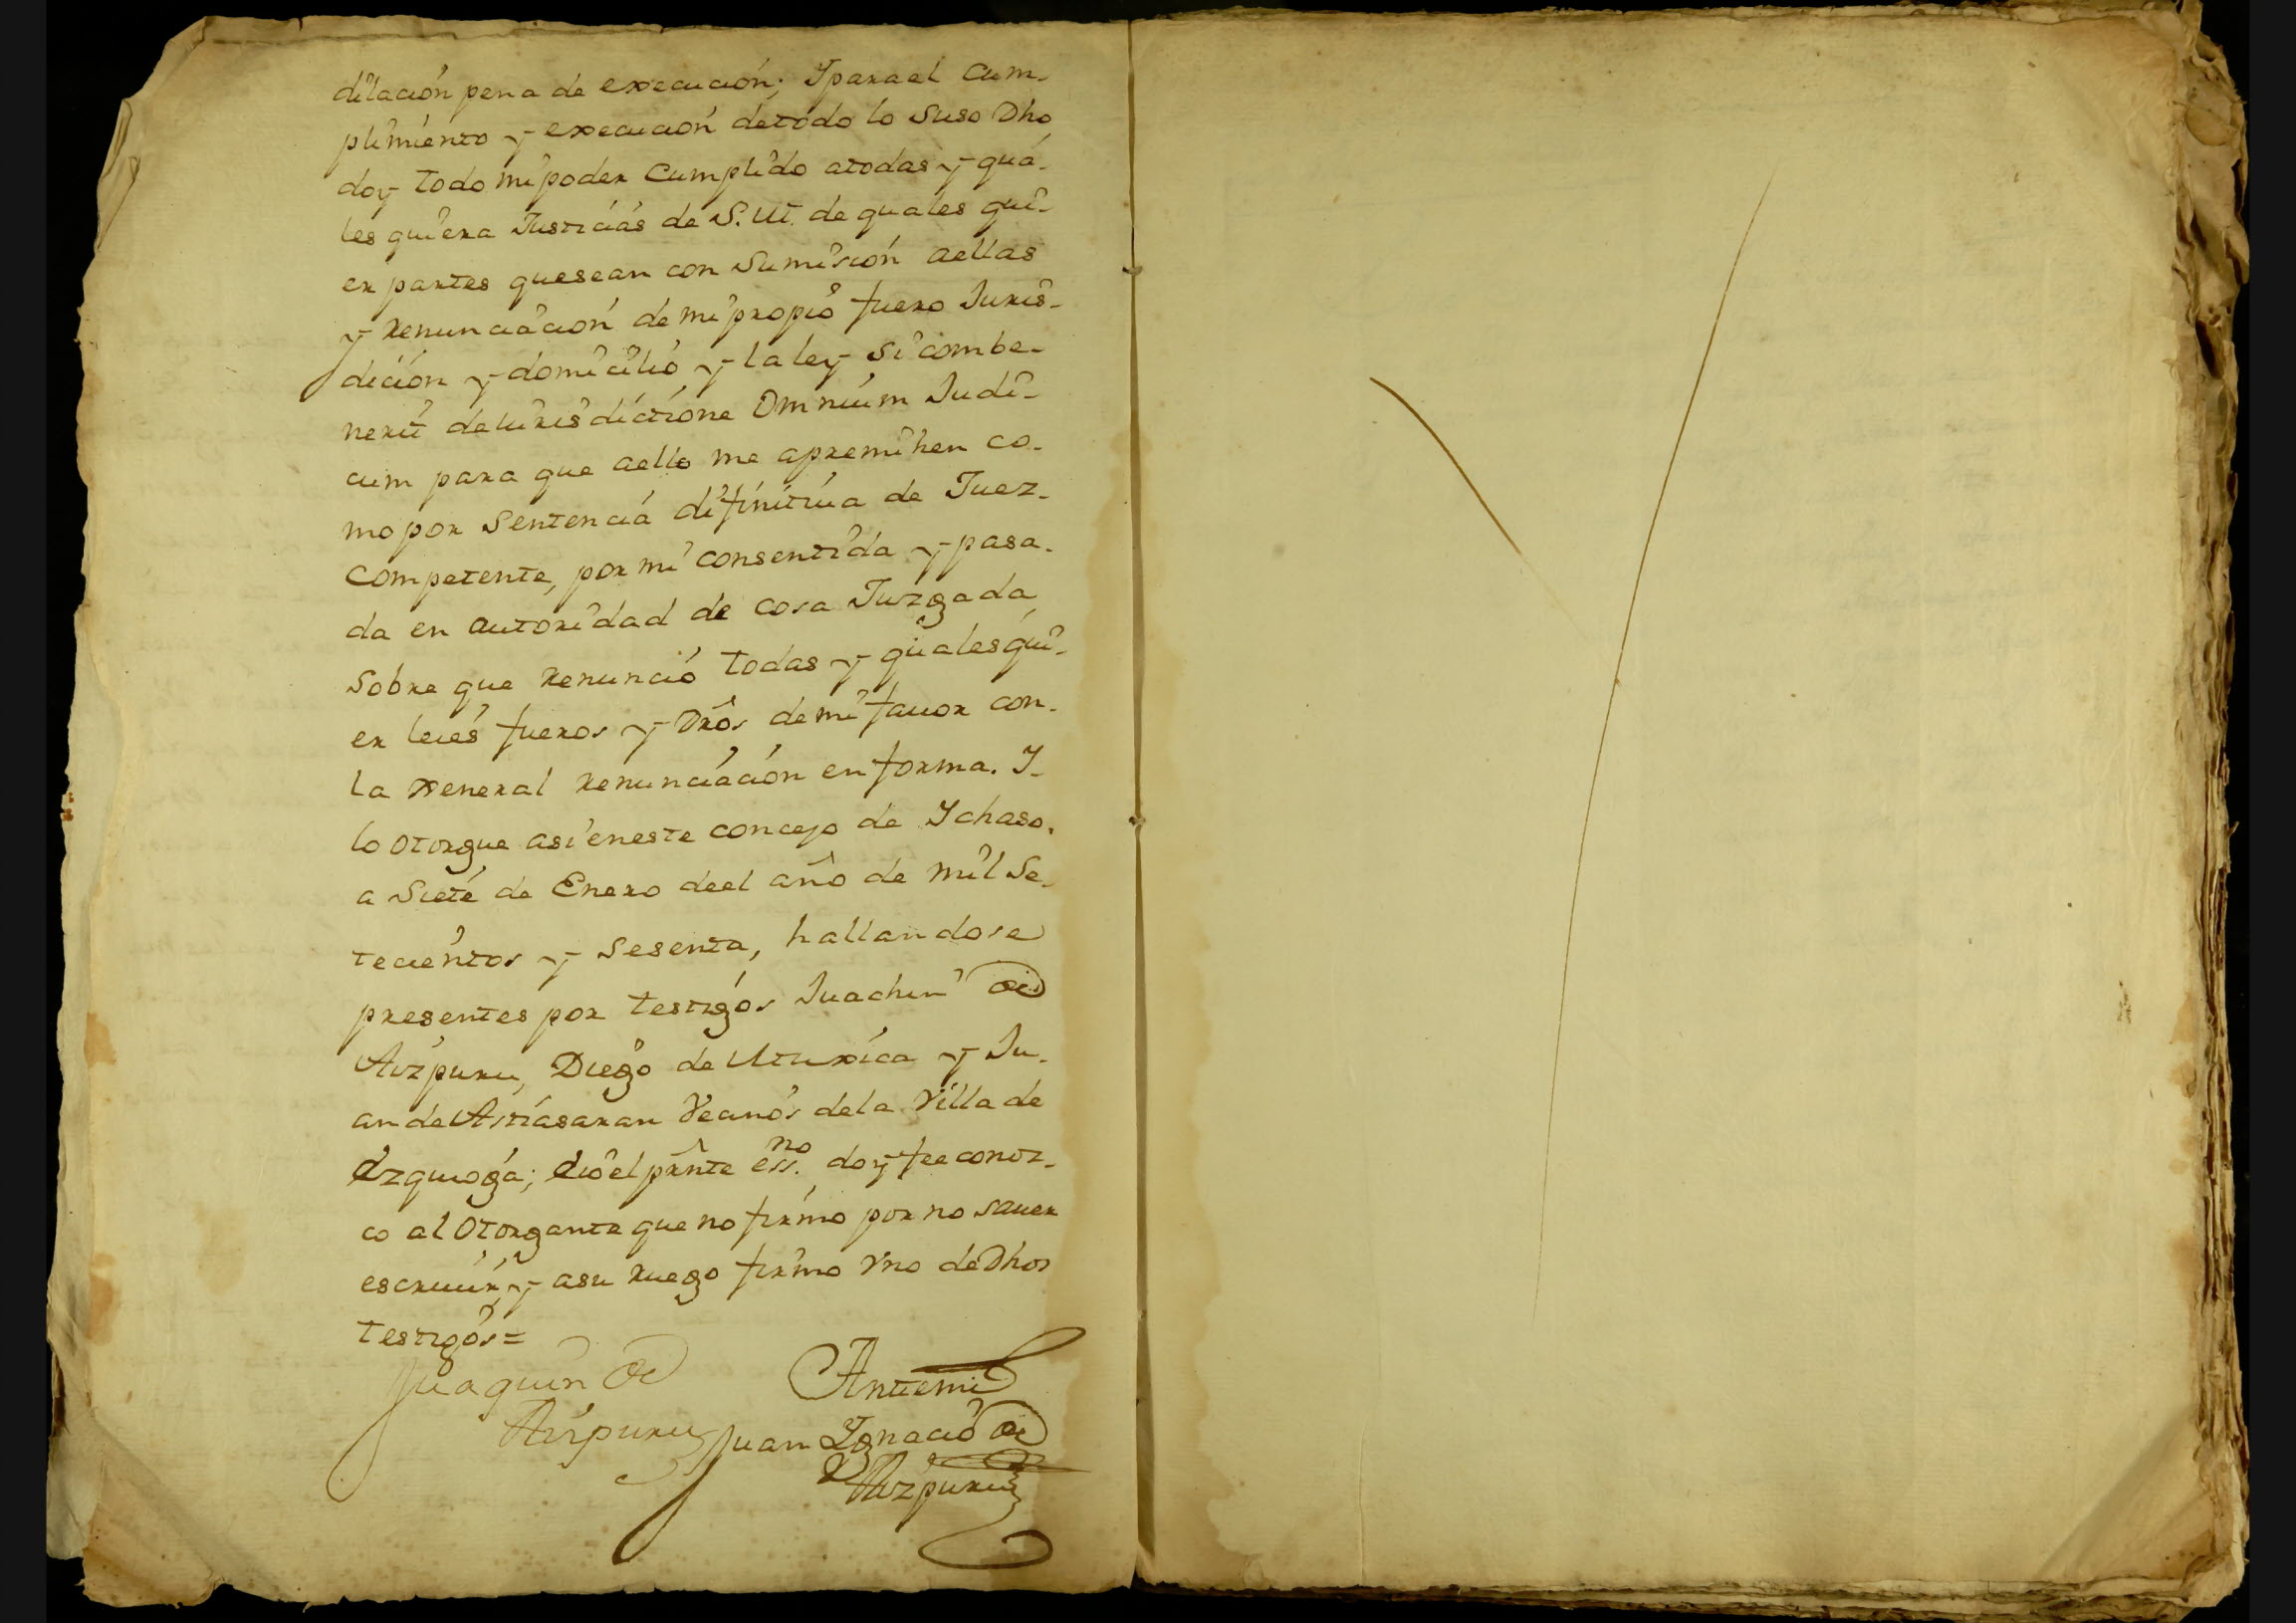 dilación pena de execución; Y para el cum-
plimiento y execución de todo lo suso Dho,
doy todo mi poder cumplido a todas y qua-
les quiera Justicias de S. M. de quales qui-
er partes que sean con sumisión a ellas
y renunciación de mi propio fuero Juris-
dición y domicilio y la ley si combe-
nerit de iurisdictione Omnium Judi-
cum para que a ello me apremihen co-
mo por Sentencia difinitiua de Juez-
competente, por mi consentida y pasa-
da en autoridad de cosa Juzgada,
sobre que renunció todas y qualesqui-
er leies fueros y Dros de mi fauor con-
la xeneral renunciación en forma. Y-
lo otorgue asi en este concejo de Ychaso,
a Siete de Enero de el año de mil Se-
tecientos y sesenta, hallandose
presentes por testigos Juachin de
Aizpuru, Diego de Uruxica y Ju-
an de Astiasaran Vecinos de la Villa de
Ezquioga; e io el prnte essno. doy fee conoz-
co al otorgante que no firmo por no sauer
escriuir, y a su ruego firmo vno de Dhos
testigos=
Juaquin de Aizpuru
Antemi
Juan Ygnacio de
Aizpuru